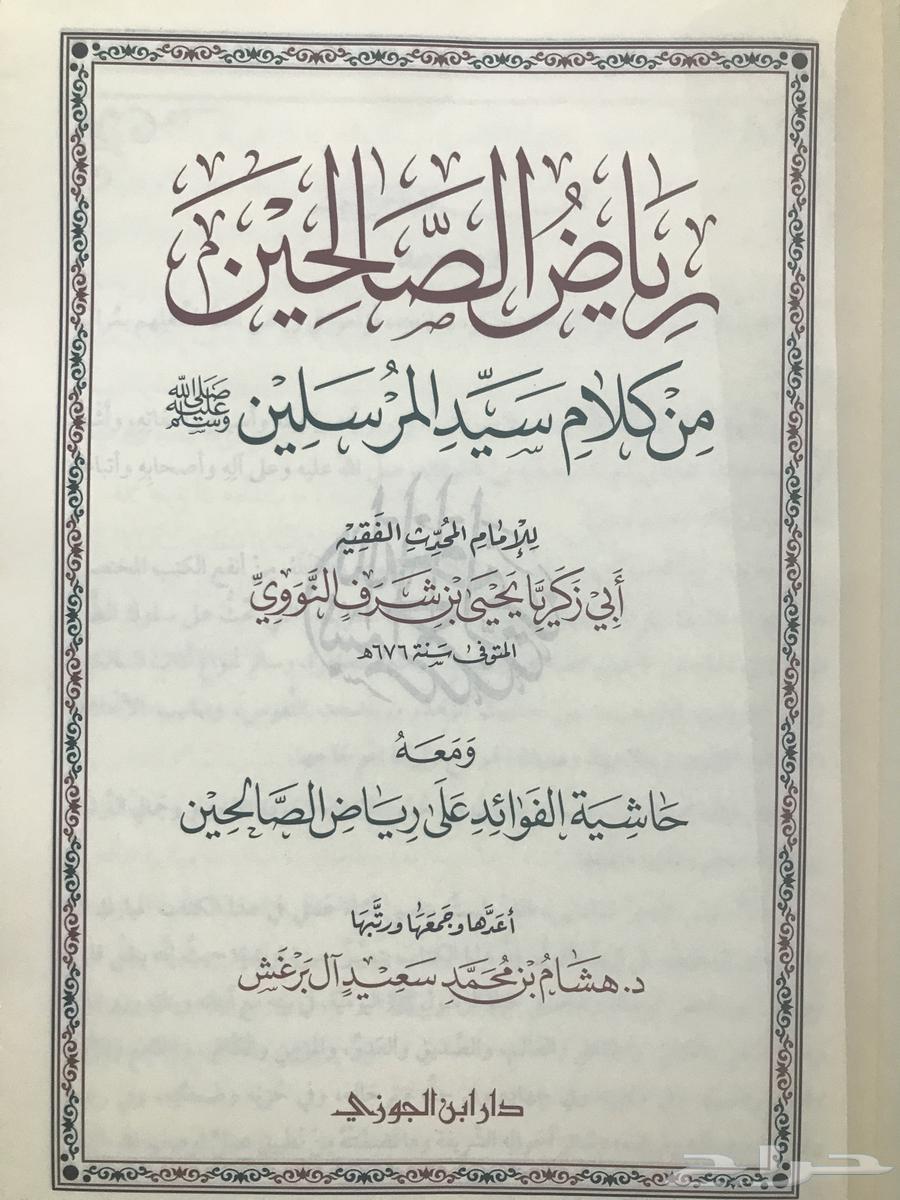 رِيَاضُ الصَّالِحِيْنَ
مِنْ كَلَامِ سَيِّدِ المُرْسَلِيْن ﷺ
لِلإِمَامِ المُحَدِّثِ الفَقِيْهِ
أَبِيْ زَكَرِيَّا يَحْيَى بْنِ شَرَفٍ النَّوَوِيِّ
المتوفى سَنة ٦٧٦هـ
وَمَعَهُ
حَاشِيَة الفَوَائِدِ عَلَى رِيَاضِ الصَّالِحِيْن
أعَدَّها وجَمَعَهَا ورتَّبهَا
د. هشَامُ بْنُ مُحَمَّدٍ سَعِيْدٍ آل بَرْغَش
دار ابن الجوزي
حراج